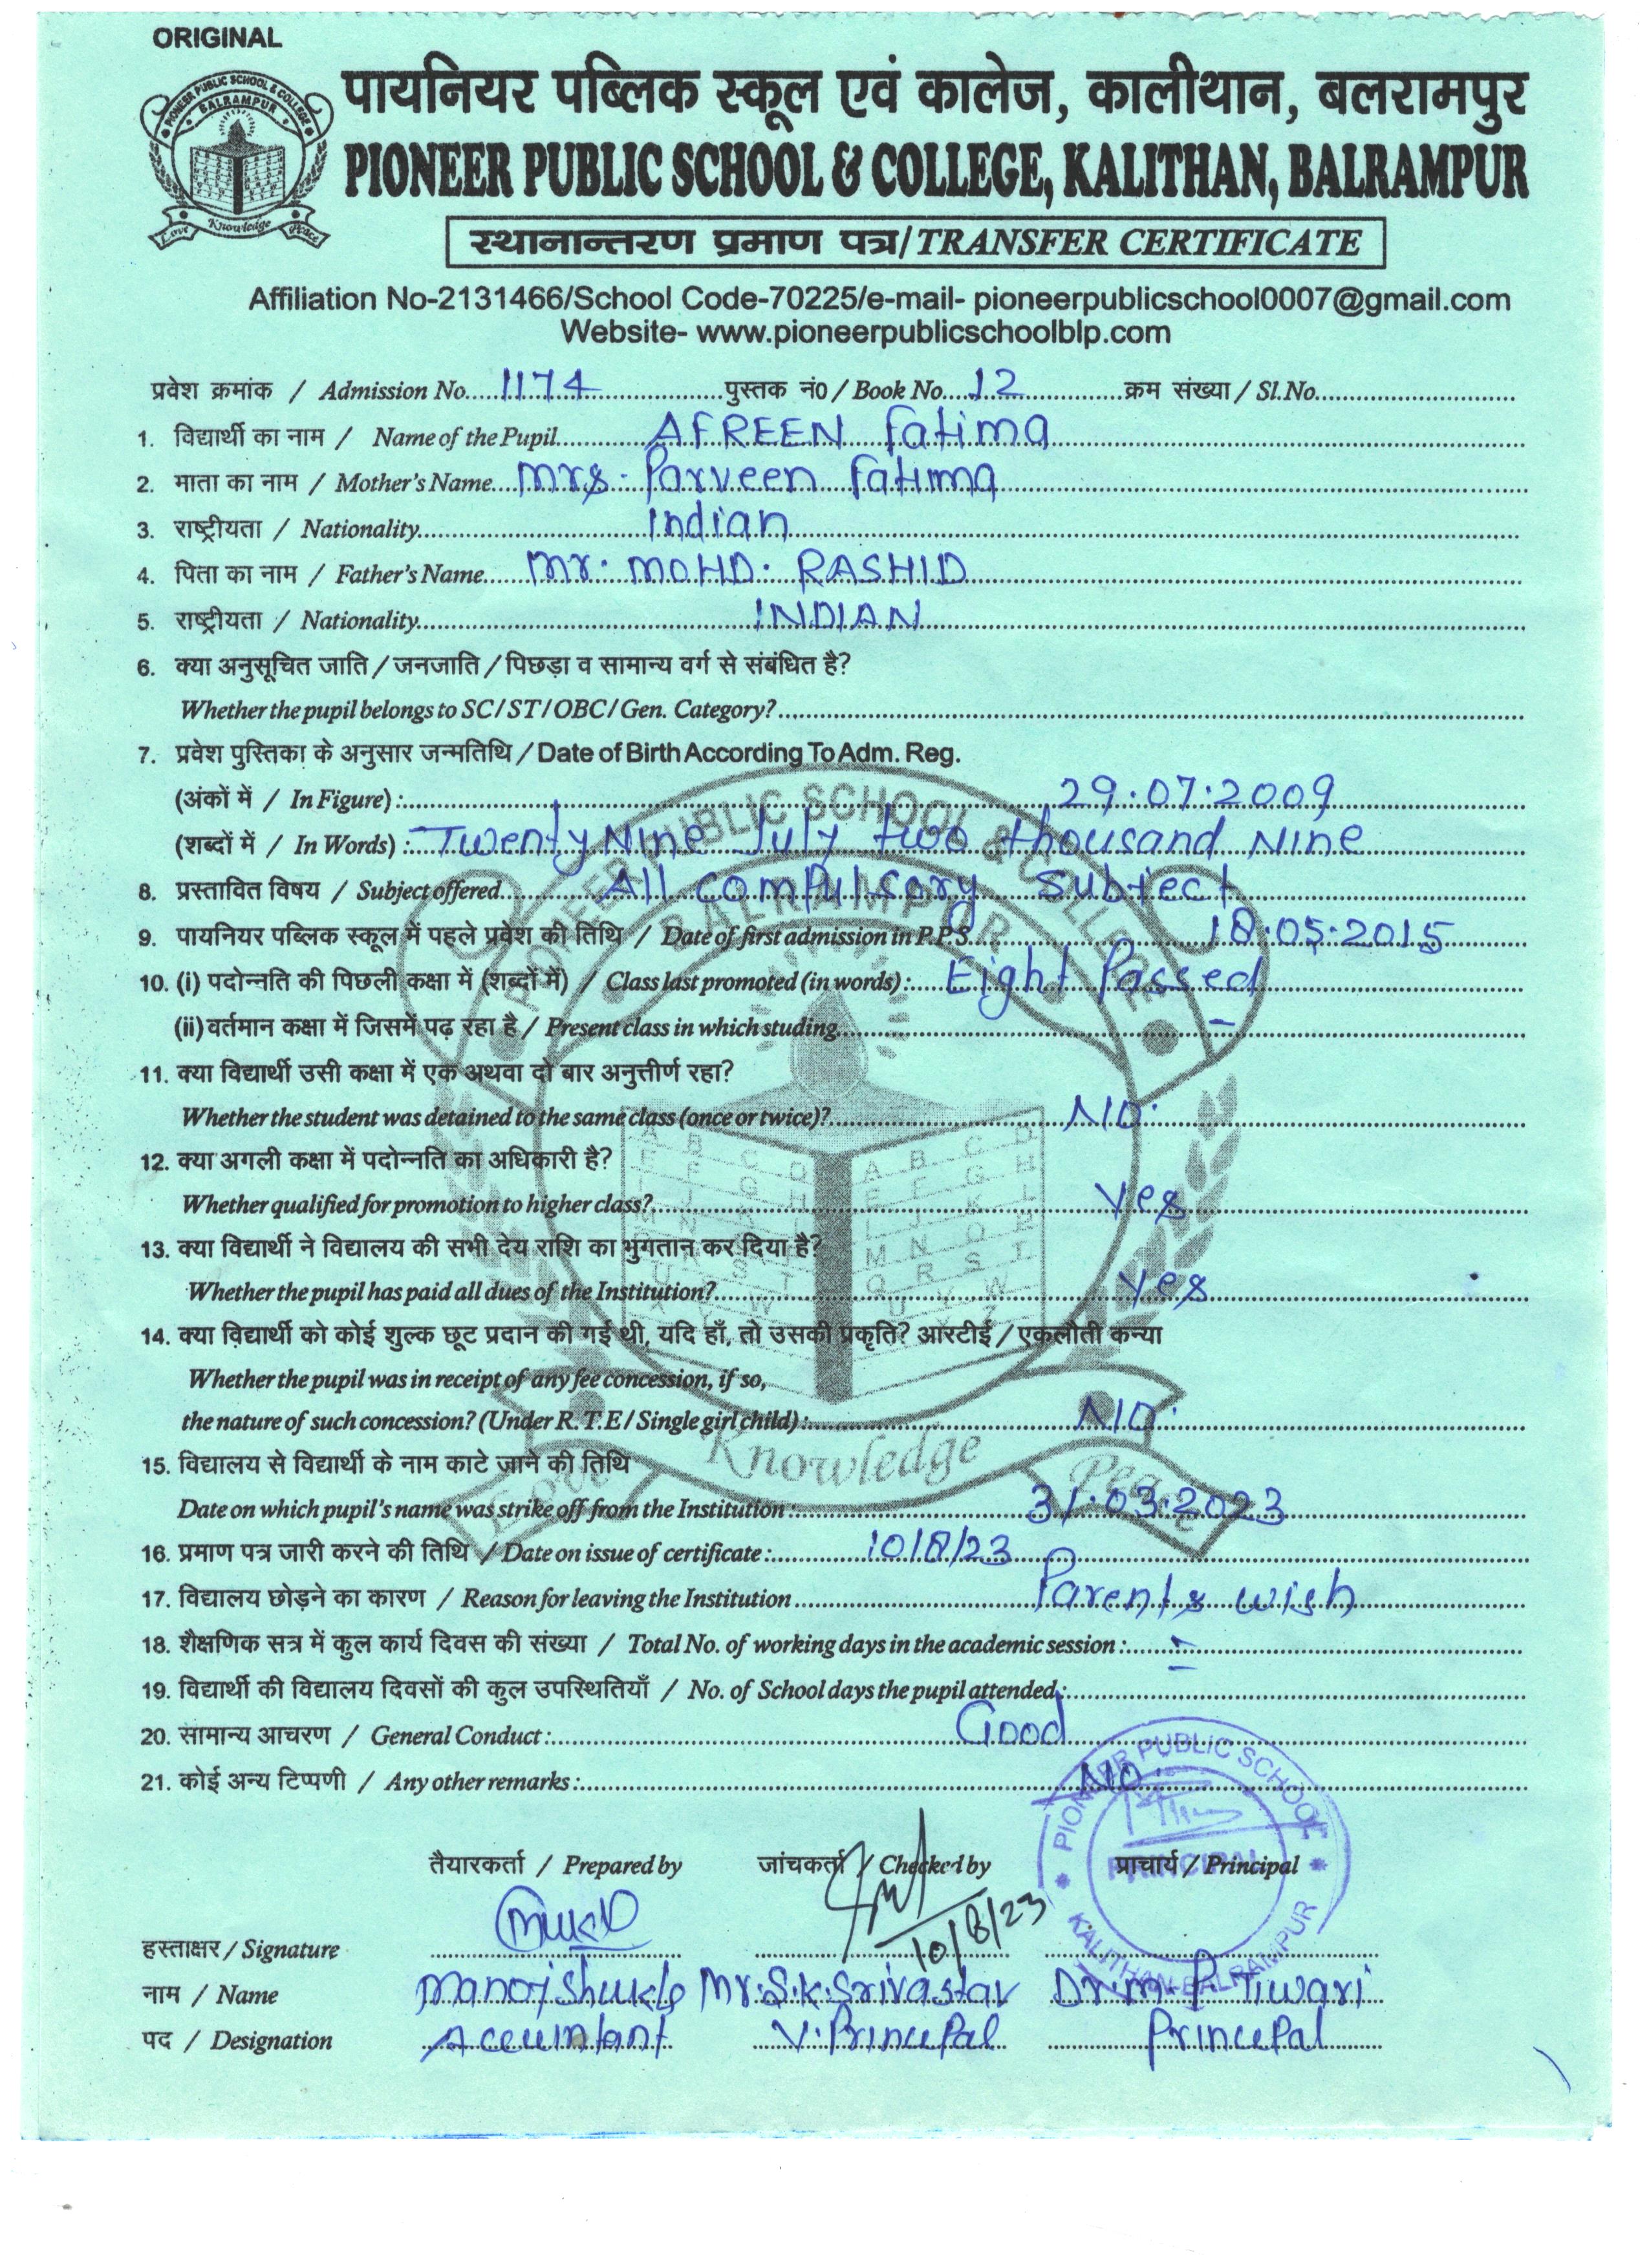 ORIGINAL
पायनियर पब्लिक स्कूल एवं कालेज, कालीथान, बलरामपुर
PIONEER PUBLIC SCHOOL & COLLEGE, KALITHAN, BALRAMPUR
PIONEER PUBLIC SCHOOL & COLLEGE
BALRAMPUR
Love Knowledge Peace
स्थानान्तरण प्रमाण पत्र/TRANSFER CERTIFICATE
Affiliation No-2131466/School Code-70225/e-mail- pioneerpublicschool0007@gmail.com
Website- www.pioneerpublicschoolblp.com
प्रवेश क्रमांक / Admission No. 1174 पुस्तक नं0 / Book No. 12 क्रम संख्या / Sl.No.
1. विद्यार्थी का नाम / Name of the Pupil AFREEN Fatima
2. माता का नाम / Mother's Name Mrs. Parveen Fatima
3. राष्ट्रीयता / Nationality Indian
4. पिता का नाम / Father's Name Mr. MOHD. RASHID
5. राष्ट्रीयता / Nationality INDIAN
6. क्या अनुसूचित जाति / जनजाति / पिछड़ा व सामान्य वर्ग से संबंधित है?
Whether the pupil belongs to SC/ST/OBC/Gen. Category?
7. प्रवेश पुस्तिका के अनुसार जन्मतिथि / Date of Birth According To Adm. Reg.
(अंकों में / In Figure) : 29.07.2009
(शब्दों में / In Words) : Twenty Nine July two thousand Nine
8. प्रस्तावित विषय / Subject offered All compulsory subject
9. पायनियर पब्लिक स्कूल में पहले प्रवेश की तिथि / Date of first admission in P.P.S. 18.05.2015
10. (i) पदोन्नति की पिछली कक्षा में (शब्दों में) / Class last promoted (in words) : Eight Passed
(ii) वर्तमान कक्षा में जिसमें पढ़ रहा है / Present class in which studing –
11. क्या विद्यार्थी उसी कक्षा में एक अथवा दो बार अनुत्तीर्ण रहा?
Whether the student was detained to the same class (once or twice)? NO.
12. क्या अगली कक्षा में पदोन्नति का अधिकारी है?
Whether qualified for promotion to higher class? Yes
13. क्या विद्यार्थी ने विद्यालय की सभी देय राशि का भुगतान कर दिया है?
Whether the pupil has paid all dues of the Institution? Yes
14. क्या विद्यार्थी को कोई शुल्क छूट प्रदान की गई थी, यदि हाँ, तो उसकी प्रकृति? आरटीई / एकलौती कन्या
Whether the pupil was in receipt of any fee concession, if so,
the nature of such concession? (Under R.T.E/Single girl child) : NO.
15. विद्यालय से विद्यार्थी के नाम काटे जाने की तिथि
Date on which pupil's name was strike off from the Institution : 31.03.2023
16. प्रमाण पत्र जारी करने की तिथि / Date on issue of certificate : 10/8/23
17. विद्यालय छोड़ने का कारण / Reason for leaving the Institution Parents wish
18. शैक्षणिक सत्र में कुल कार्य दिवस की संख्या / Total No. of working days in the academic session : –
19. विद्यार्थी की विद्यालय दिवसों की कुल उपस्थितियाँ / No. of School days the pupil attended : –
20. सामान्य आचरण / General Conduct : Good
21. कोई अन्य टिप्पणी / Any other remarks : NO.
PIONEER PUBLIC SCHOOL
PRINCIPAL
KALITHAN-BALRAMPUR
तैयारकर्ता / Prepared by जांचकर्ता / Checked by प्राचार्य / Principal
हस्ताक्षर / Signature 10/8/23
नाम / Name Manoj Shukla Mr. S.K. Srivastav Dr M. P. Tiwari
पद / Designation Accuintant V. Principal Principal